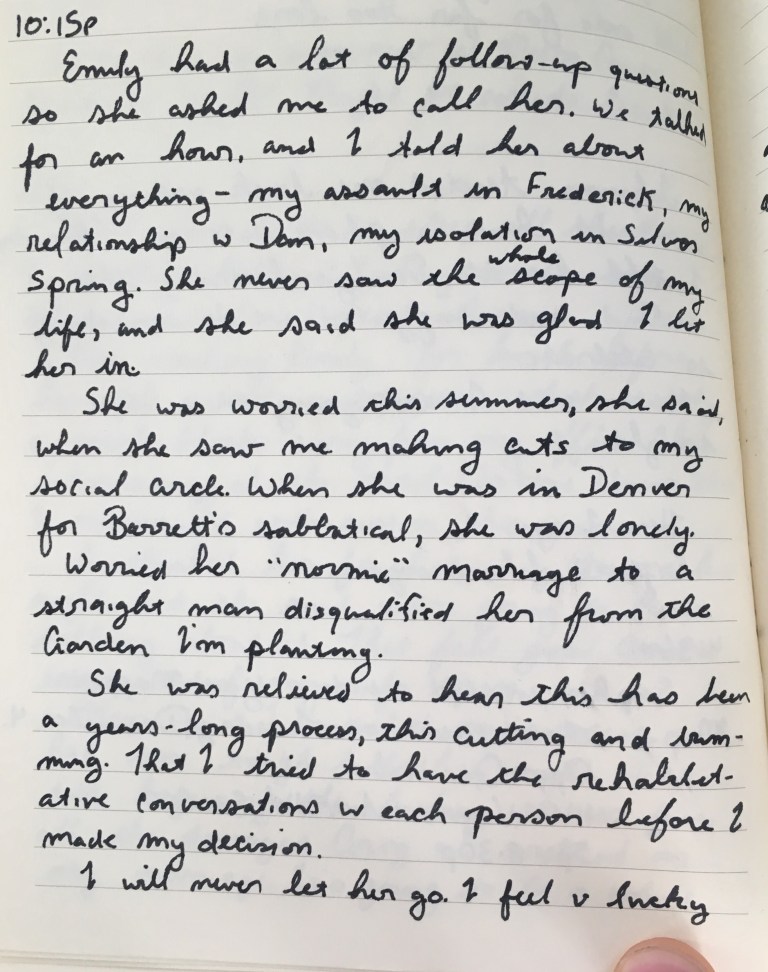 10:15p
Emily had a lot of follow-up questions
so she asked me to call her. We talked
for an hour, and I told her about
everything – my assault in Frederick, my
relationship w Dom, my isolation in Silver
Spring. She never saw the whole scope of my
life, and she said she was glad I let
her in.
She was worried this summer, she said,
when she saw me making cuts to my
social circle. When she was in Denver
for Barrett's sabbatical, she was lonely.
Worried her "normie" marriage to a
straight man disqualified her from the
Garden I'm planting.
She was relieved to hear this has been
a years-long process, this cutting and trim-
ming. That I tried to have the rehabilit-
ative conversations w each person before I
made my decision.
I will never let her go. I feel v lucky